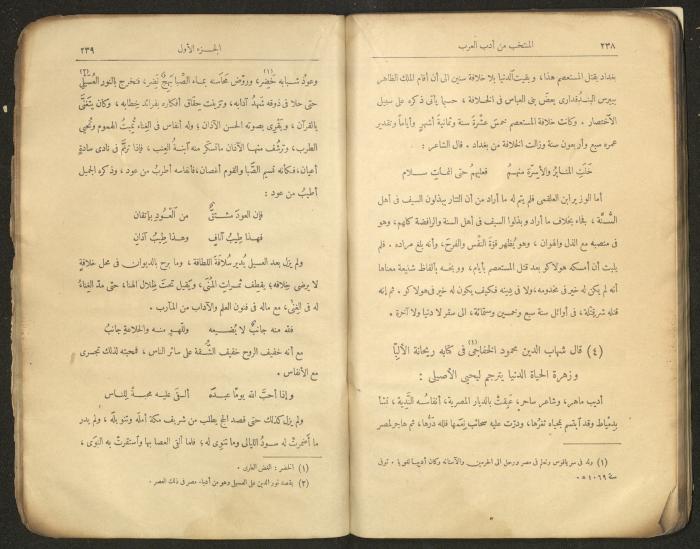 ٢٣٨
المنتخب من أدب العرب
بغداد بقتل المستعصم هذا، وبقيت الدنيا بلا خلافة سنين إلى أن أقام الملك الظاهر
بيبرس البندقدارى بعض بنى العباس فى الخلافة، حسبما يأتى ذكره على سبيل
الاختصار. وكانت خلافة المستعصم خمس عشرة سنة وثمانية أشهر وأياما وتقدير
عمره سبع وأربعون سنة وزالت الخلافة من بغداد. قال الشاعر:
خلت المنابر والأسرة منهم فعليهم حتى الممات سلام
أما الوزير ابن العلقمى فلم يتم له ما أراد من أن التتار يبذلون السيف فى أهل
السُّنَّة، فجاء بخلاف ما أراد وبذلوا السيف فى أهل السنة والرافضة كلهم، وهو
فى منصبه مع الذل والهوان، وهو يُظهر قوة النفس والفرح، وأنه بلغ مراده. فلم
يلبث أن أمسكه هولاكو بعد قتل المستعصم بأيام، ووبخه بألفاظ شنيعة معناها
أنه لم يكن له خير فى مخدومه، ولا فى دينه فكيف يكون له خير فى هولاكو. ثم إنه
قتله شر قتلة، فى أوائل سنة سبع وخمسين وستمائة، الى سقر لا دنيا ولا آخرة.
(٤) قال شهاب الدين محمود الخفاجى(١) فى كتابه ريحانة الألبا
وزهرة الحياة الدنيا يترجم ليحيى الأصيلى:
أديب ماهر، وشاعر ساحر، عبقت بالديار المصرية، أنفاسه الندية، نشأ
بدمياط وقد ابتسم بمحياه ثغرها، ودرت عليه سحائب فلله درها، ثم هاجر لمصر
(١) ولد فى سرياقوس وتعلم فى مصر ورحل الى الحرمين والآستانه وكان أديبا لغويا. توفى
سنة ١٠٦٩ هـ
الجزء الأول
٢٣٩
وعود شبابه خضر(١)، وروض محاسنه بماء الصبا بهج نضر، فتخرج بالنور العُسيلى(٢)
حتى حلا فى ذوقه شهد آدابه، وتزينت حقاق أفكاره بفرائد خطابه، وكان يتغنَّى
بالقرآن، ويقرى بصوته الحسن الآذان؛ وله أنفاس فى الغناء تُميت الهموم وتحيى
الطرب، وترشف منها الآذان ما تسكر منه آنية العنب، فإذا ترنَّم فى نادى سادة
أعيان، فكأنه نسيم الصَّبا والقوم أغصان، فأنفاسه أطرب من عود، وذكره الجميل
أطيب من عود:
فإن العود مشتق من العود بإتقان
فهذا طيب آناف وهذا طيب آذان
ولم يزل بعد العسيلى يُدير سُلافة اللطافة، وما برح بالديوان فى محل خلافة
لا يرضى خلافه؛ يقطف ثمرات المُنَى، ويَقيل تحت ظلال الهنا، حتى مدّ الغناءُ
له فى الغِنَى، مع ماله فى فنون العلم والآداب من المآرب.
فلله منه جانب لا يضيعه وللهو منه والخلاعة جانب
مع أنه خفيف الروح خفيف الشُّقة على سائر الناس، فمحبته لذلك تجرى
مع الأنفاس.
وإذا أحبَّ الله يوما عبده ألقى عليه محبة للناس
ولم يزل كذلك حتى قصد الحج يطلب من شريف مكة أمله وتنويله، ولم يدر
ما أضمرت له سود الليالى وما تنوى له؛ فلما ألقى العصا بها واستقرت به النوى،
(١) الخضر: الغض الطرى.
(٢) يقصد نور الدين على العسيلى وهو من أدباء مصر فى ذلك العصر.